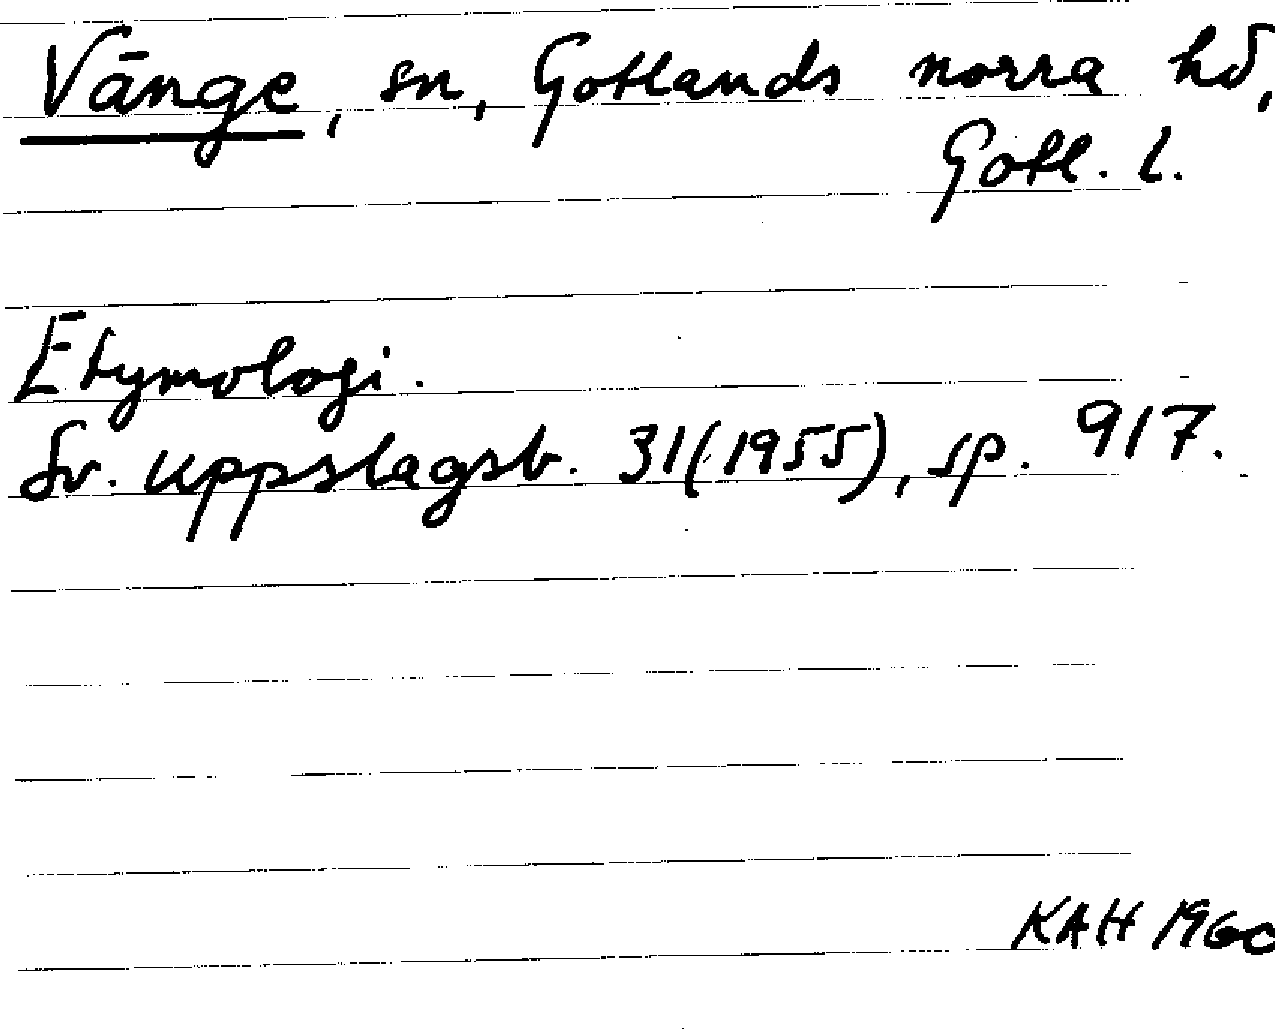 Vänge, sn, Gotlands norra hd,
Gotl. l.
Etymologi.
Sv. uppslagsb. 31(1955), sp. 917.
KAH 1960